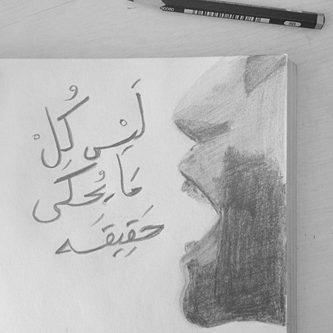 لَيْس كُلْ
مَا يُحكى
حَقِيقَـه